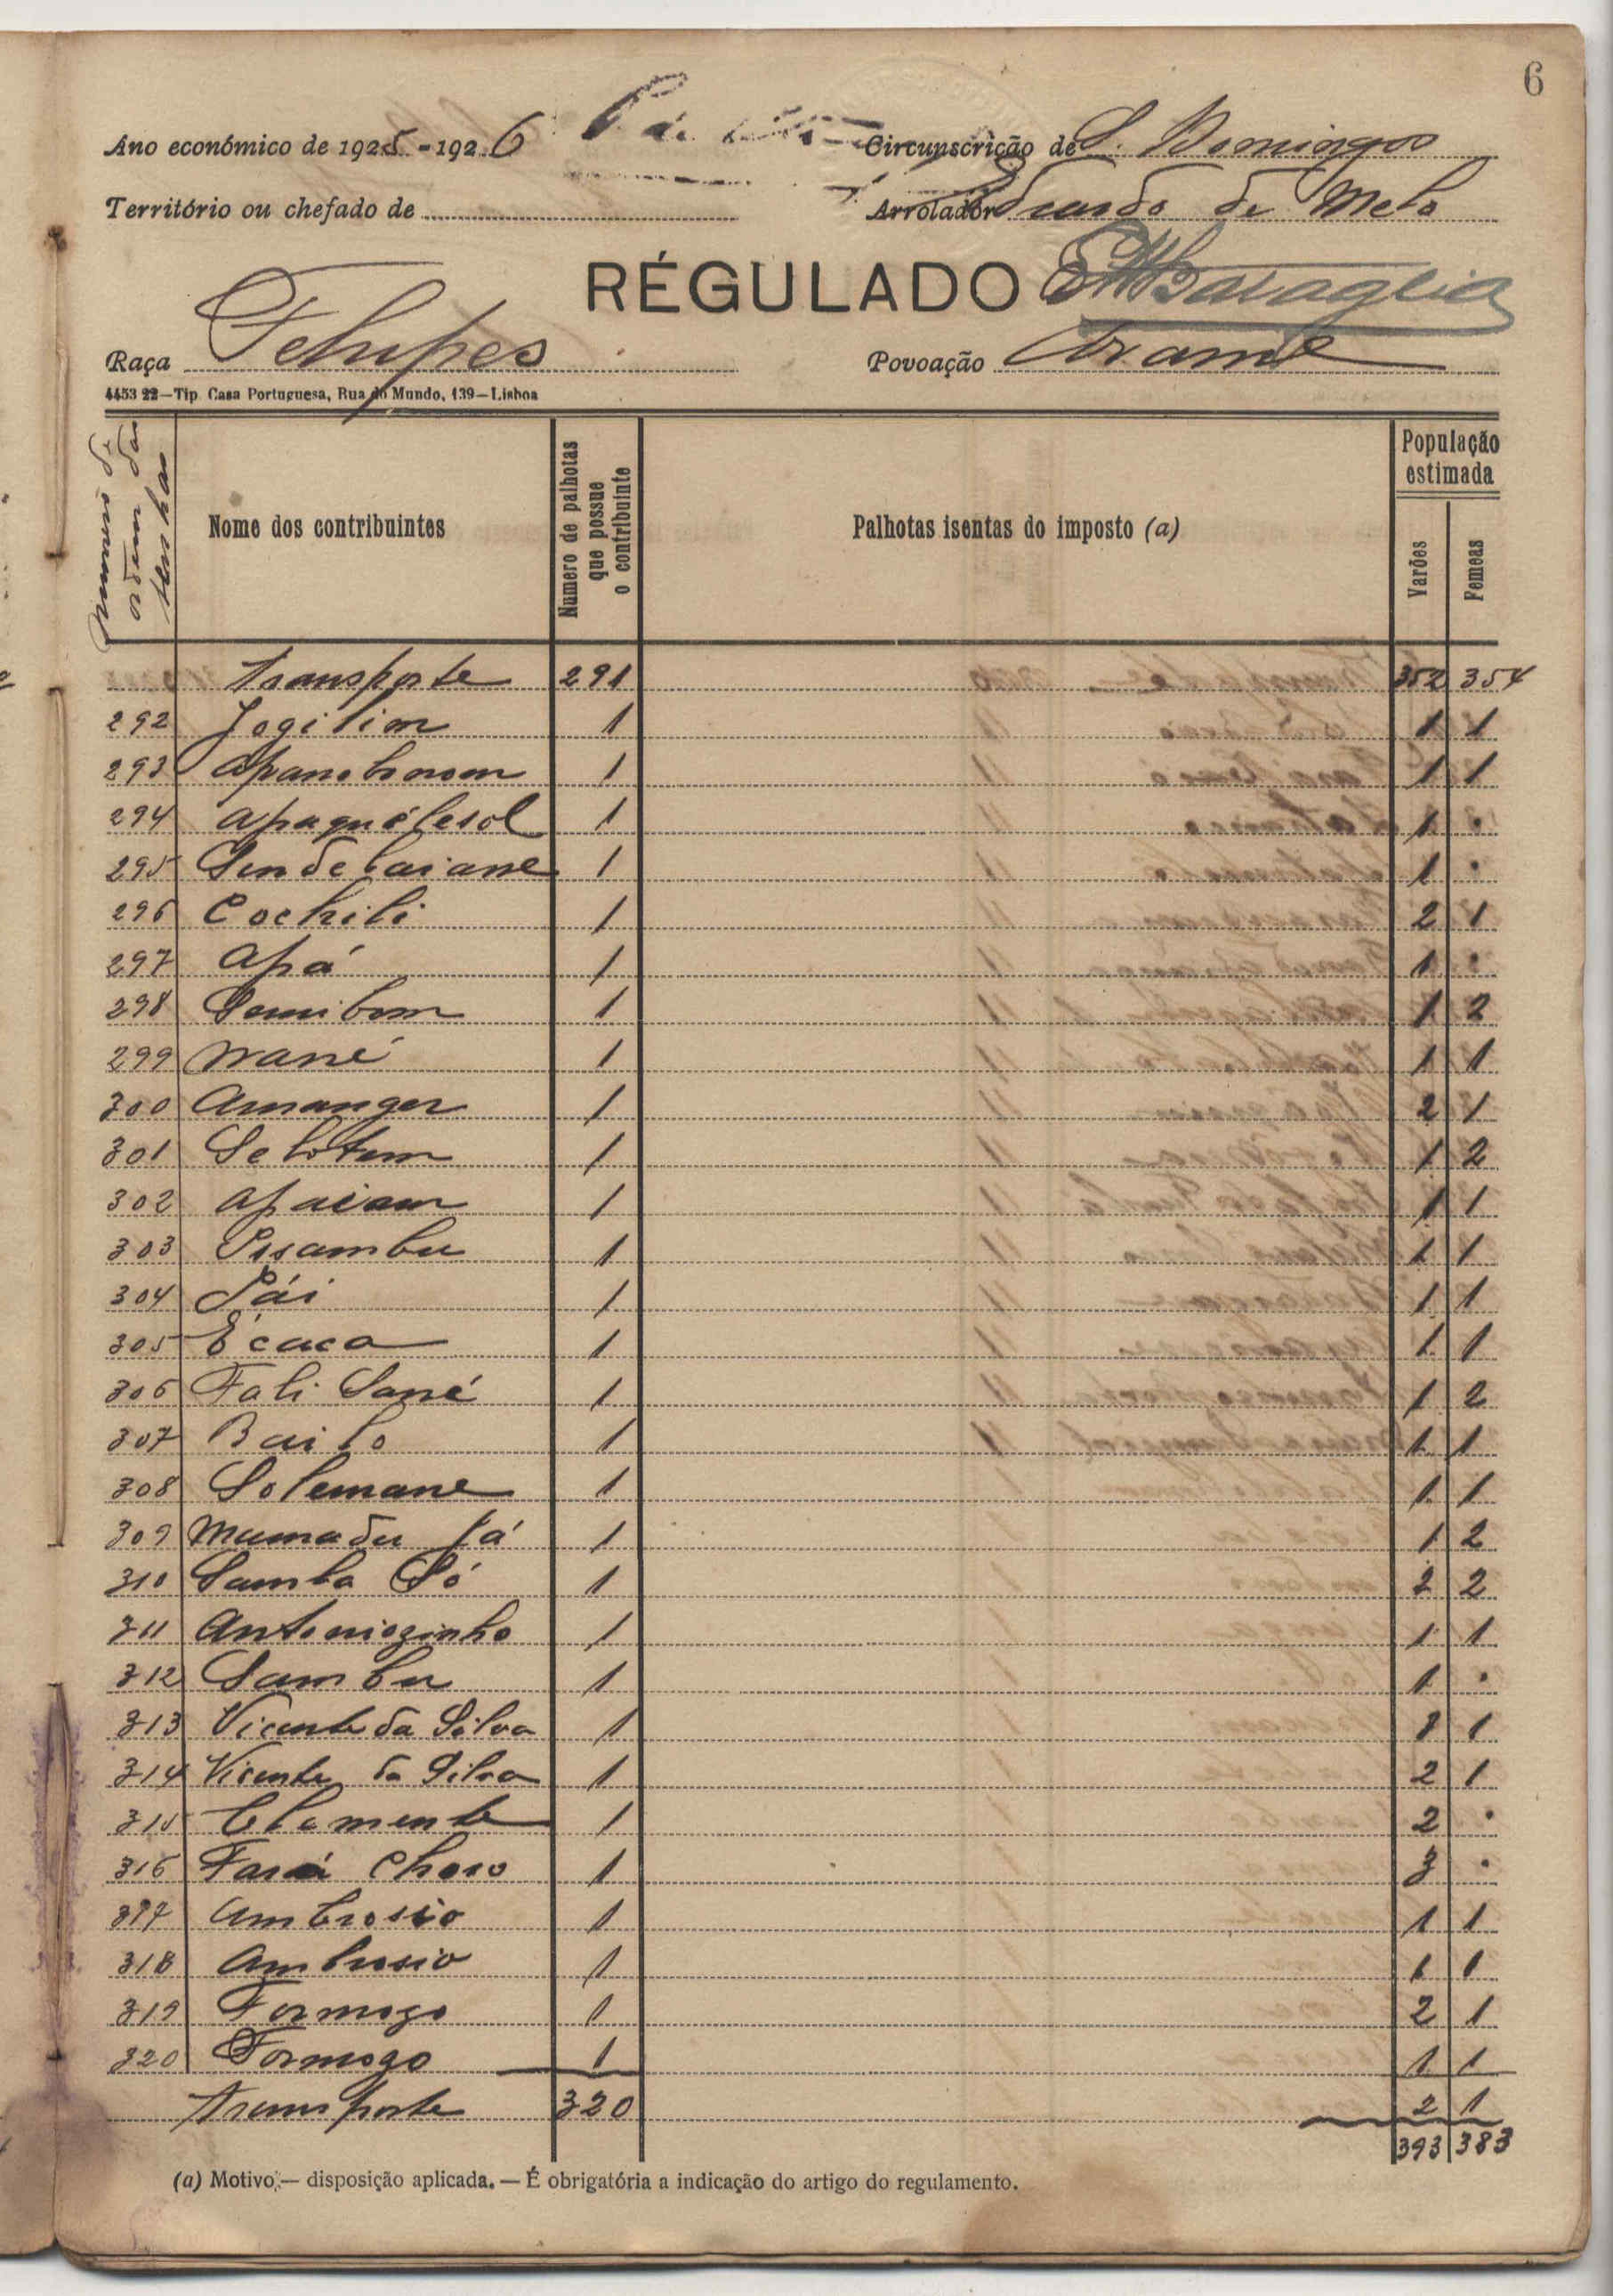 6
Ano económico de 1925-1926 Circunscrição de S. Domingos
Território ou chefado de Arrolador Eduardo de Melo
RÉGULADO
Raça Felupes Povoação Arame
4453 22—Tip. Casa Portuguesa, Rua do Mundo, 139—Lisboa
Numero de ordem das senhas
Nome dos contribuintes
Numero de palhotas que possue o contribuinte
Palhotas isentas do imposto (a)
População estimada
Varões
Femeas
Transporte 291 352 354
292 Jogilim 1 1 1
293 1 1 1
294 1 1 .
295 1 1 .
296 Cochili 1 2 1
297 Apá 1 1 .
298 Samibom 1 1 2
299 Nané 1 1 1
300 Amanger 1 2 1
301 Selotem 1 1 2
302 Apaiam 1 1 1
303 Pisambu 1 1 1
304 Pái 1 1 1
305 Écaca 1 1 1
306 Fali Sané 1 1 2
307 Bailo 1 1 1
308 Solemane 1 1 1
309 Mamadu Já 1 1 2
310 Samba Só 1 2 2
311 Antoniozinho 1 1 1
312 Sambu 1 1 .
313 Vicente da Silva 1 1 1
314 Vicente da Silva 1 2 1
315 Clemente 1 2 .
316 Fará Choro 1 3 .
317 Ambrosio 1 1 1
318 Ambrosio 1 1 1
319 Formozo 1 2 1
320 Formozo 1 1 1
Transporte 320 2 1
393 383
(a) Motivo,— disposição aplicada. — É obrigatória a indicação do artigo do regulamento.